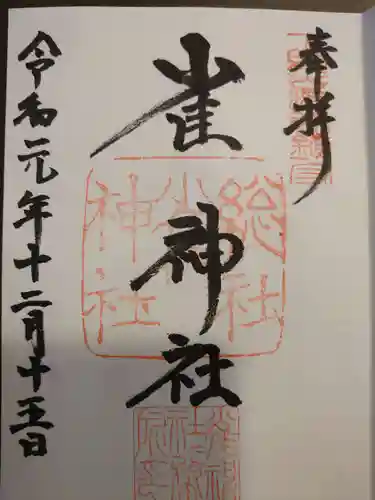 奉拝
雀神社
総社
雀
神社
令和元年十二月十五日